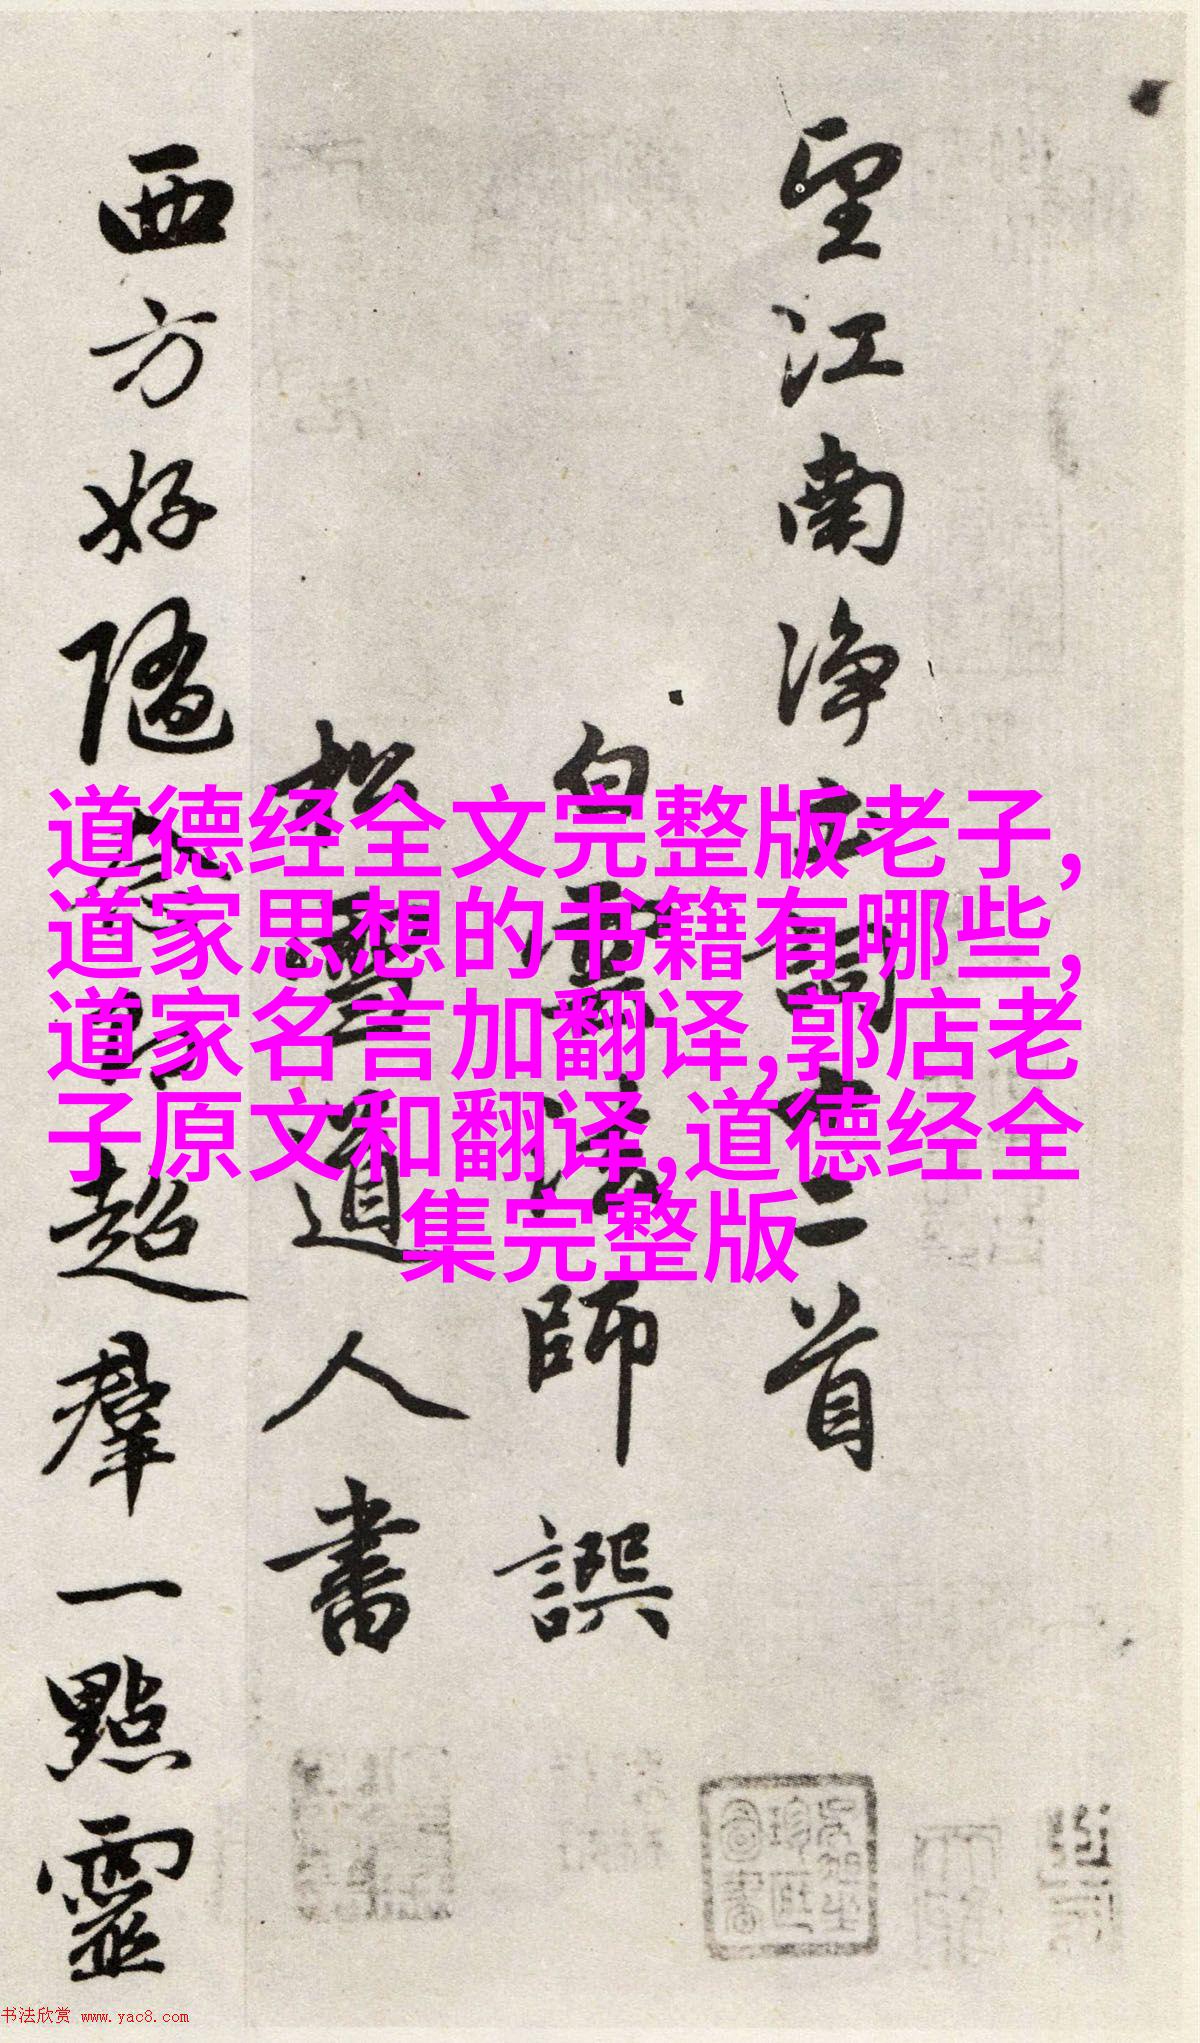 望江南净土詞十二首
白雲法師譔
松雪道人書
西方好隨念即超羣一點靈
道德经全文完整版老子,
道家思想的书籍有哪些,
道家名言加翻译,郭店老
子原文和翻译,道德经全
集完整版
书法欣赏 www.yac8.com